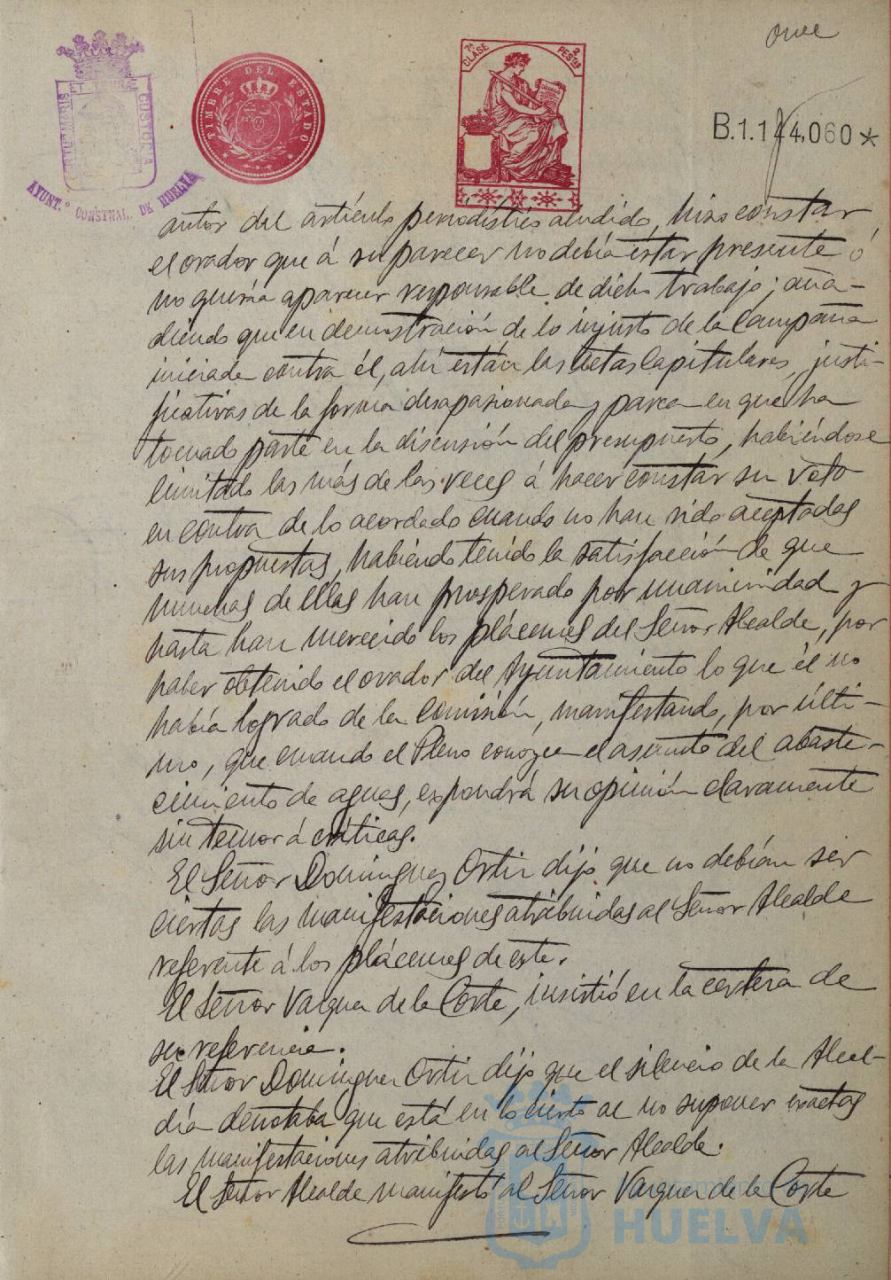 once
PORTUS MARIS ET TERRAE CUSTODIA
AYUNT.º CONSTNAL. DE HUELVA
TIMBRE DEL ESTADO
7ª CLASE
2 PESTAS
B.1.144,060*
autor del artículo periodístico aludido, hizo constar
el orador que á su parecer no debía estar presente ó
no quería aparecer responsable de dicho trabajo; aña-
diendo que en demostración de lo injusto de la campaña
iniciada contra él, ahí están las Actas Capitulares, justi-
ficativas de la forma desapasionada y parca en que ha
tomado parte en la discusión del presupuesto, habiéndose
limitado las más de las veces á hacer constar su voto
en contra de lo acordado cuando no han sido aceptadas
sus propuestas, habiendo tenido la satisfacción de que
muchas de ellas han prosperado por unanimidad y
hasta han merecido los plácemes del Señor Alcalde, por
haber obtenido el orador del Ayuntamiento lo que él no
había logrado de la Comisión, manifestando, por últi-
mo, que cuando el Pleno conozca el asunto del abaste-
cimiento de aguas, expondrá su opinión claramente
sin temor á críticas.
El Señor Domínguez Ortiz dijo que no debían ser
ciertas las manifestaciones atribuidas al Señor Alcalde
referente á los plácemes de este.
El Señor Vazquez de la Corte, insistió en la certeza de
su referencia.
El Señor Dominguez Ortiz dijo que el silencio de la Alcal-
día denotaba que está en lo cierto al no suponer exactas
las manifestaciones atribuidas al Señor Alcalde.
El Señor Alcalde manifestó al Señor Vazquez de la Corte
HUELVA